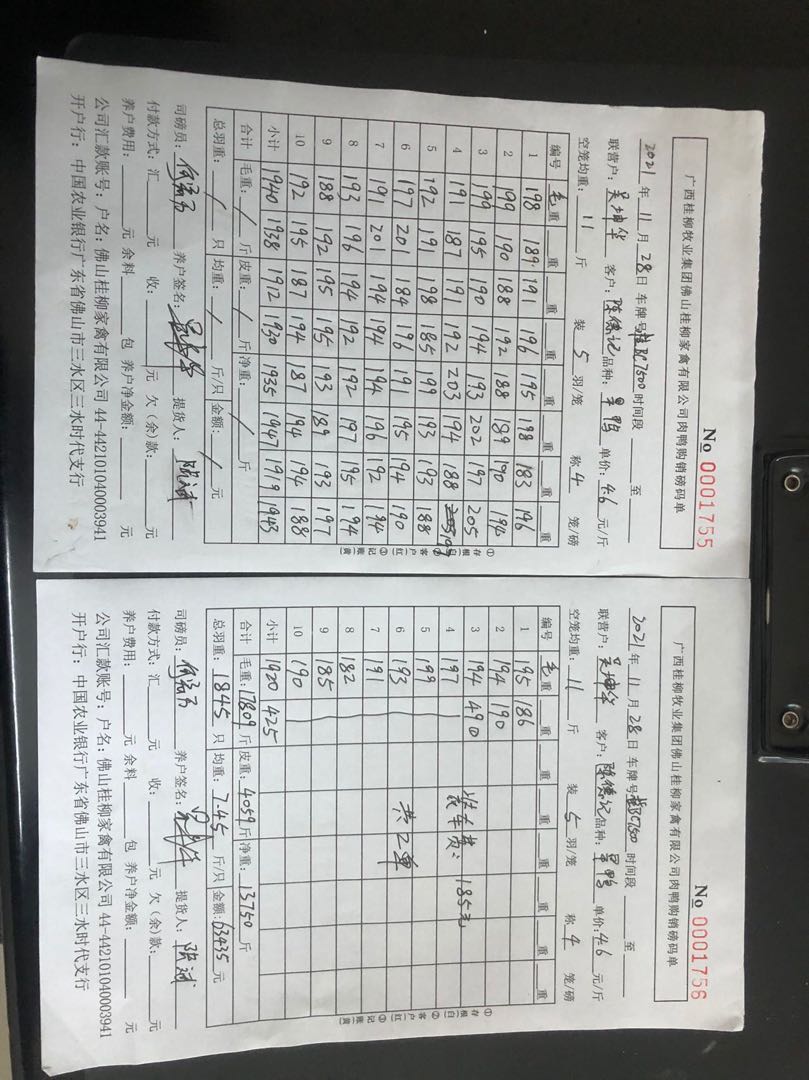 广西桂柳牧业集团佛山桂柳家禽有限公司肉鸭购销磅码单
No 0001755
2021年 11月 28日 车牌号 桂BC7500 时间段 至
联营户： 吴坤华 客户： 陈德记 品种： 单鸭 单价： 4.6 元/斤
空笼均重： 11 斤 装 5 羽/笼 称 4 笼/磅
编号 毛重 重 重 重 重 重 重 重
1 198 189 191 196 195 198 183 196
2 199 190 188 192 188 189 190 194
3 199 195 190 194 193 202 197 205
4 191 187 191 192 203 194 188 197
5 192 191 198 185 199 193 193 188
6 197 201 184 196 191 195 194 190
7 191 201 194 194 194 196 192 194
8 193 196 194 192 192 197 195 194
9 188 192 195 195 193 189 193 197
10 192 195 187 194 187 194 194 188
小计 1940 1938 1912 1930 1935 1947 1919 1943
合计 毛重： / 斤 皮重： / 斤 净重： / 斤
总羽重： / 只 均重： / 斤/只 金额： / 元
①存根(白) ②客户(红) ③记账(黄)
司磅员： 养户签名： 提货人： 陈斌
付款方式：汇 元 收： 元 欠（余）款： 元
养户费用： 元 余料 包 养户净金额： 元
公司汇款账号：户名：佛山桂柳家禽有限公司 44-442101040003941
开户行：中国农业银行广东省佛山市三水区三水时代支行
广西桂柳牧业集团佛山桂柳家禽有限公司肉鸭购销磅码单
No 0001756
2021年 11月 28日 车牌号 桂BC7500 时间段 至
联营户： 吴坤华 客户： 陈德记 品种： 单鸭 单价： 4.6 元/斤
空笼均重： 11 斤 装 5 羽/笼 称 4 笼/磅
编号 毛重 重 重 重 重 重 重 重
1 195 186
2 194 190
3 194 490
4 197 装车费：185元
5 199
6 193 共2单
7 191
8 182
9 185
10 190
小计 1920 425
合计 毛重：17809斤 皮重：4059斤 净重：13750 斤
总羽重：1845只 均重：7.45 斤/只 金额：63435元
①存根(白) ②客户(红) ③记账(黄)
司磅员： 养户签名： 提货人： 陈斌
付款方式：汇 元 收： 元 欠（余）款： 元
养户费用： 元 余料 包 养户净金额： 元
公司汇款账号：户名：佛山桂柳家禽有限公司 44-442101040003941
开户行：中国农业银行广东省佛山市三水区三水时代支行